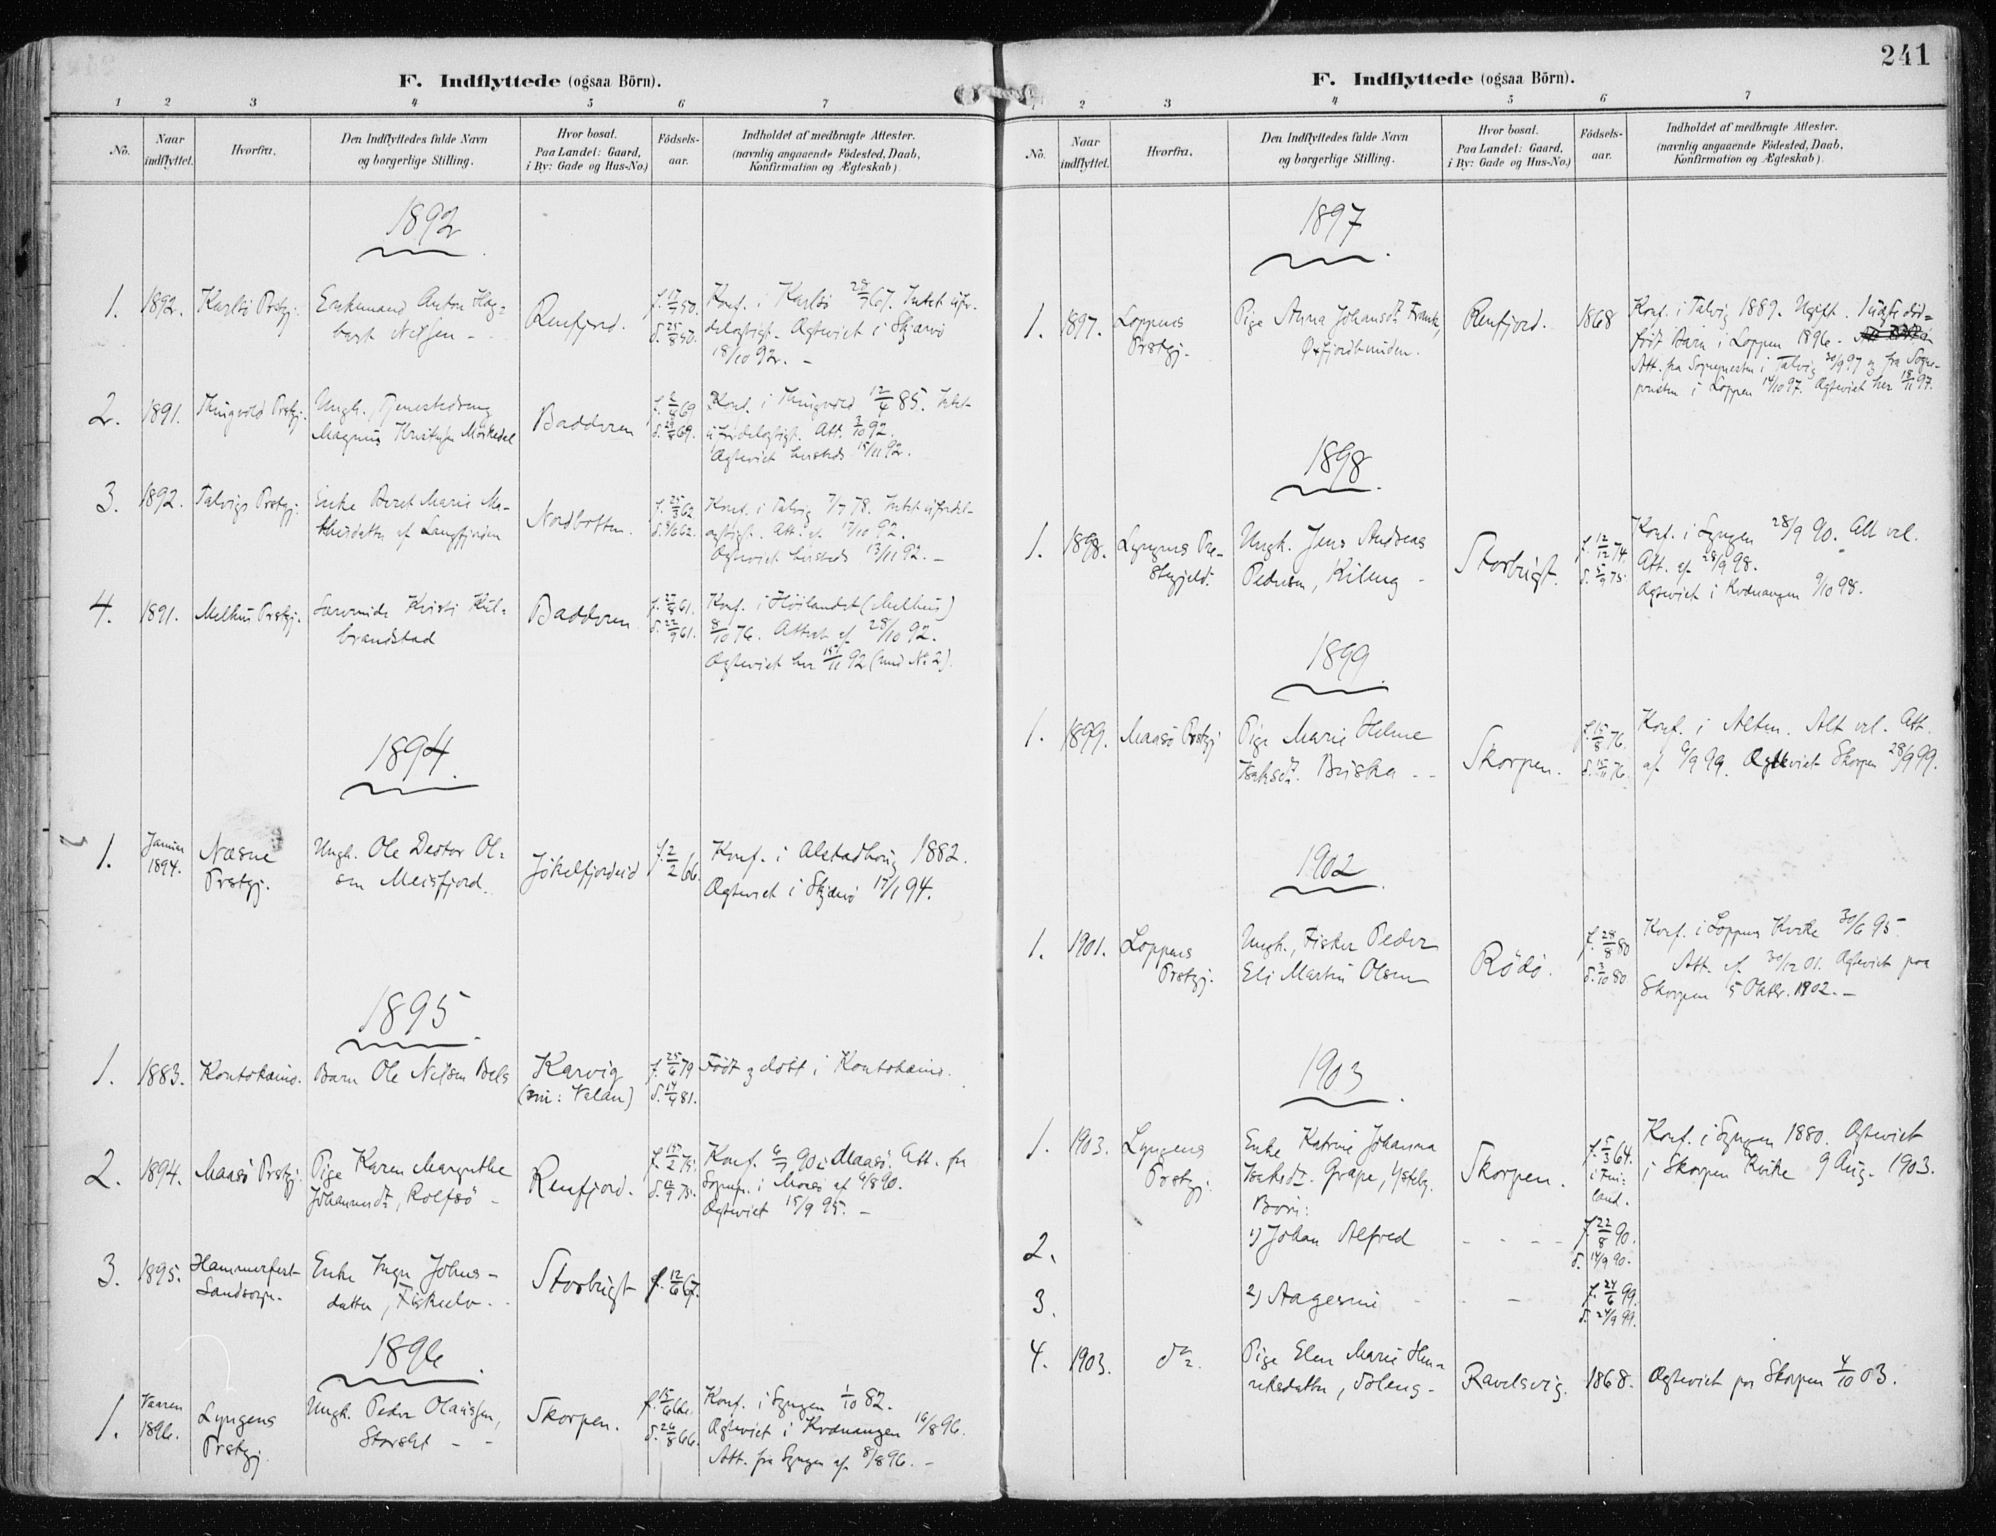 F. Indflyttede (ogsaa Börn).
1 2 3 4 5 6 7
No.
Naar
indflyttet.
Hvorfra.
Den Indflyttedes fulde Navn
og borgerlige Stilling.
Hvor bosat.
Paa Landet: Gaard,
i By: Gade og Hus-No.)
Födsels-
aar.
Indholdet af medbragte Attester.
(navnlig angaaende Födested, Daab,
Konfirmation og Ægteskab)
1892
1. 1892. Karlsö Prstgj. Enkemand Anton Hag=
bart Nelsen - -
Renfjord.
f. 17/7 50.
d. 25/8 50.
Konf. i Karlsö 28/7 67. Intet ufor-
delagtigt. Ægteviet i Skjærvö
18/10 92. -
2. 1891. Prstgj. Ungk. Tjenestedreng
Magnus Kristofer Mörkedal
Badderen
Konf. i 12/6 85. Intet
ufordelagtigt. Att. 3/10 92.
Ægteviet hersteds 15/11 92.
3. 1892. Talvigs Prstgj. Enke Beret Marie Ma-
thisdatter af Langfjorden
Nordbotten.
f. 25/3 62.
d. 9/6 62.
Konf. i Talvig 7/7 78. Intet ufordel-
agtigt. Att. af 17/10 92.
Ægteviet hersteds 13/11 92. -
4. 1891. Melhus Prstgj. Kristi Hil=
brandstad
Badderen
d. 22/9 61.
Konf. i Höilandet (Melhus)
8/10 76. Attest af 28/10 92.
Ægteviet her 15/11 92 (med No 2).
1894.
1. Januar
1894.
Næsne
Prstgj.
Ungk. Ole Destor Ol=
sen Meisfjord.
Jökelfjordeid
f. 2/2 66.
Konf. i Alstadhoug 1882.
Ægteviet i Skjærvö 17/1 94.
1895.
1. 1883. Koutokæino. Barn Ole Nelsen Bals
Karvig
(nu: Valan)
f. 25/6 79
d. 14/4 81.
Födt og döbt i Koutokæino.
2. 1894. Maasö Prstgj. Pige Karen Margrethe
Johannesdtr, Rolfsö -
Renfjord.
f. 15/2 75.
Konf. 6/7 90 i Maasö. Att. fra
Sognepr. i Maasö af 6/8 90.
Ægteviet 15/9 95. -
3. 1895. Hammerfest
Landsogn.
Enke Inger Johns-
datter, Fiskeelv. -
Storbugt
f. 12/6 67.
1896.
1. Vaaren
1896.
Lyngens
Prstgj.
Ungk. Peder Olaussen,
Storslet - -
Skorpen.
f. 15/6 66.
d. 26/8 66.
Konf. i Lyngen 1/10 82.
Ægteviet i Kvænangen 16/8 96.
Att. fra Lyngen af 8/8 96. -
241
F. Indflyttede (ogsaa Börn).
1 2 3 4 5 6 7
No.
Naar
indflyttet.
Hvorfra.
Den Indflyttedes fulde Navn
og borgerlige Stilling.
Hvor bosat.
Paa Landet: Gaard,
i By: Gade og Hus-No.)
Födsels-
aar.
Indholdet af medbragte Attester.
(navnlig angaaende Födested, Daab,
Konfirmation og Ægteskab)
1897.
1. 1897. Loppens
Prstgj.
Pige Anna Johansdtr Frank,
Öxfjordbunden.
Renfjord. 1868
Konf. i Talvig 1889. Ugift. 1 död=
födt Barn i Loppen 1896 -
Att. fra Sognepresten i Talvig 30/9 97 og fra Sogne-
presten i Loppen 14/10 97. Ægteviet her 18/11 97.
1898.
1. 1898. Lyngens Pre-
stegjeld.
Ungk. Jens Andreas
Pedersen, Kileng -
Storbugt.
f. 12/12 74.
Konf. i Lyngen 28/9 90. Alt vel.
Att. af 28/9 98.
Ægteviet i Kvænangen 9/10 98.
1899.
1. 1899. Maasö Prstgj Pige Marie Helene
Isaksdtr. Briska - -
Skorpen.
f. 15/8 76.
d. 15/11 76.
Konf. i Alten. Alt vel. Att.
af 6/9 99. Ægteviet Skorpen 28/9 99.
1902.
1. 1901. Loppens
Prstgj.
Ungk., Fisker Peder
Eli Martin Olsen
Rödö.
f. 28/8 80
d. 3/10 80.
Konf. i Loppens Kirke 30/6 95.
Att. af 30/12 01. Ægteviet paa
Skorpen 5 Oktbr. 1902. -
1903.
1. 1903. Lyngens
Prstgj.
Enke Katrine Johanna
Isaksdtr. Grape,
Börn:
Skorpen.
f. 5/3 64.
i Fin-
land.
Konf. i Lyngen 1880. Ægteviet
i Skorpen Kirke 9 Aug. 1903.
2. 1) Johan Alfred - - - -
f. 22/8 90.
d. 14/9 90.
3. 2) Aagesine - - -
f. 24/6 99.
d. 24/9 99.
4. 1903. do. Pige Elen Marie Hen-
riksdatter,
Ravelsvig. 1868. Ægteviet paa Skorpen 4/10 03.